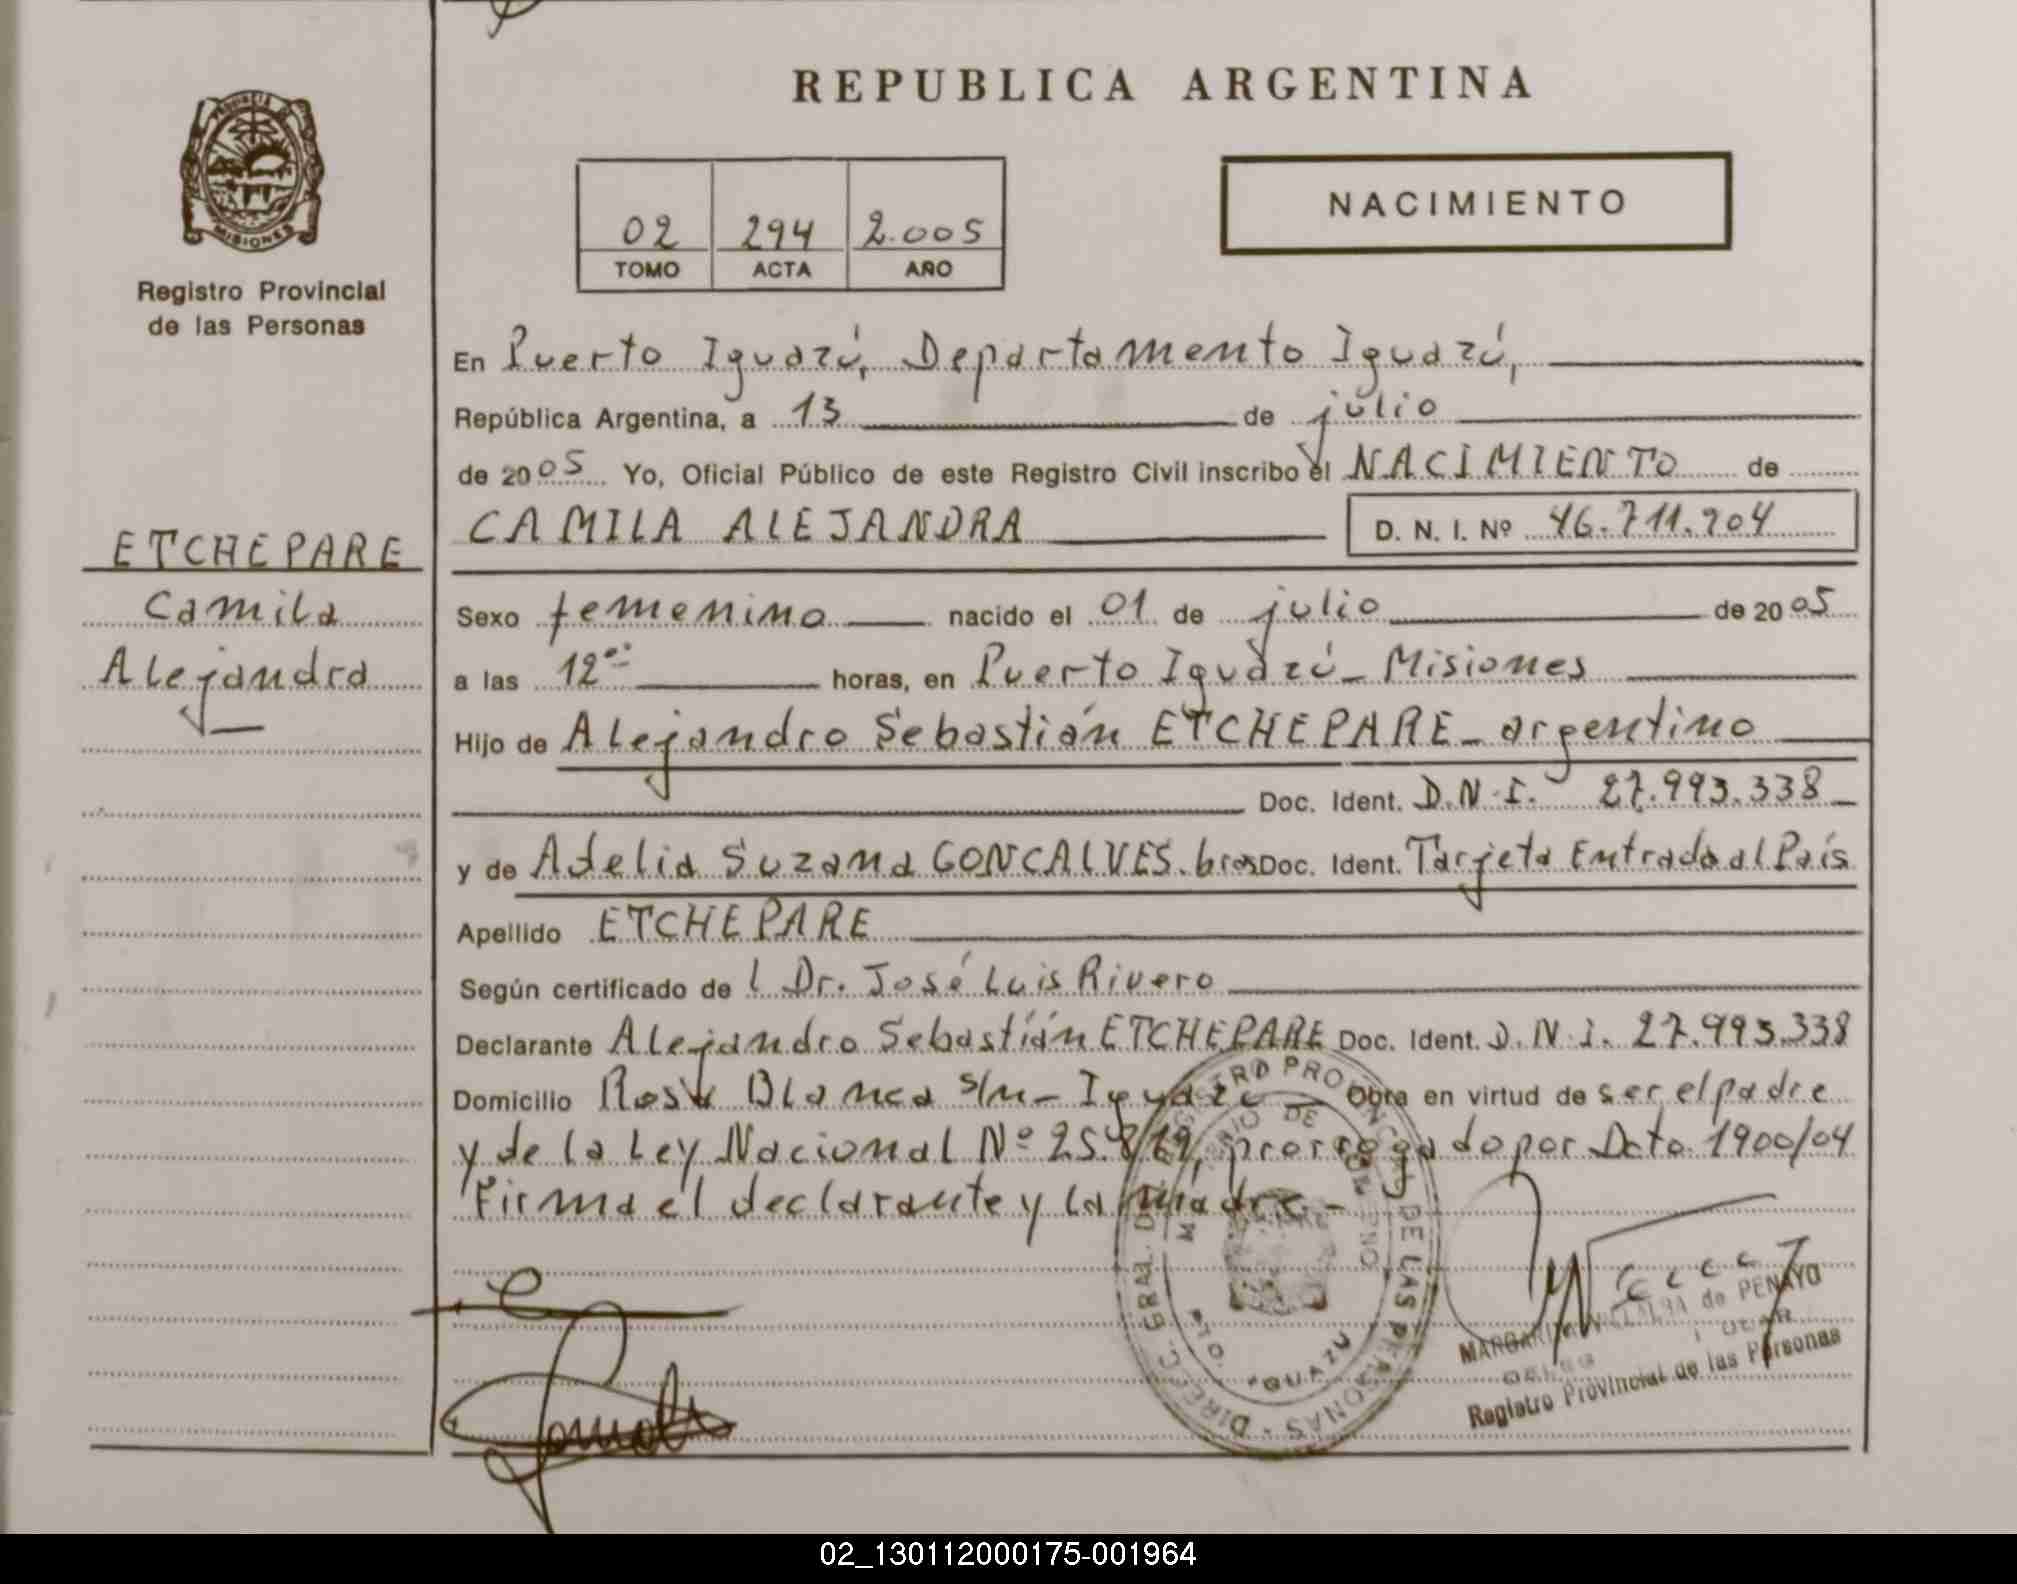 REPUBLICA ARGENTINA
PROVINCIA DE
MISIONES
Registro Provincial
de las Personas
02 294 2.005
TOMO ACTA AÑO
NACIMIENTO
En Puerto Iguazú, Departamento Iguazú,
República Argentina, a 13 de julio
de 2005 Yo, Oficial Público de este Registro Civil inscribo el NACIMIENTO de
CAMILA ALEJANDRA D. N. I. Nº 46.711.904
ETCHEPARE
Camila
Alejandra
Sexo femenino nacido el 01 de julio de 2005
a las 12 horas, en Puerto Iguazú - Misiones
Hijo de Alejandro Sebastián ETCHEPARE - argentino
Doc. Ident. D.N.I. 27.993.338
y de Adelia Suzana GONCALVES. bras Doc. Ident. Tarjeta Entrada al País
Apellido ETCHEPARE
Según certificado de l Dr. José Luis Rivero
Declarante Alejandro Sebastián ETCHEPARE Doc. Ident. D.N.I. 27.993.338
Domicilio Rosa Blanca s/n - Iguazú Obra en virtud de ser el padre
y de la Ley Nacional Nº 25.819, prorrogado por Dcto. 1900/04
Firma el declarante y la madre.-
DIREC. GRAL. DEL REGISTRO PROVINCIAL DE LAS PERSONAS
MINISTERIO DE GOBIERNO
PTO. IGUAZU
MARGARITA VILLALBA de PENAYO
Registro Provincial de las Personas
02_130112000175-001964